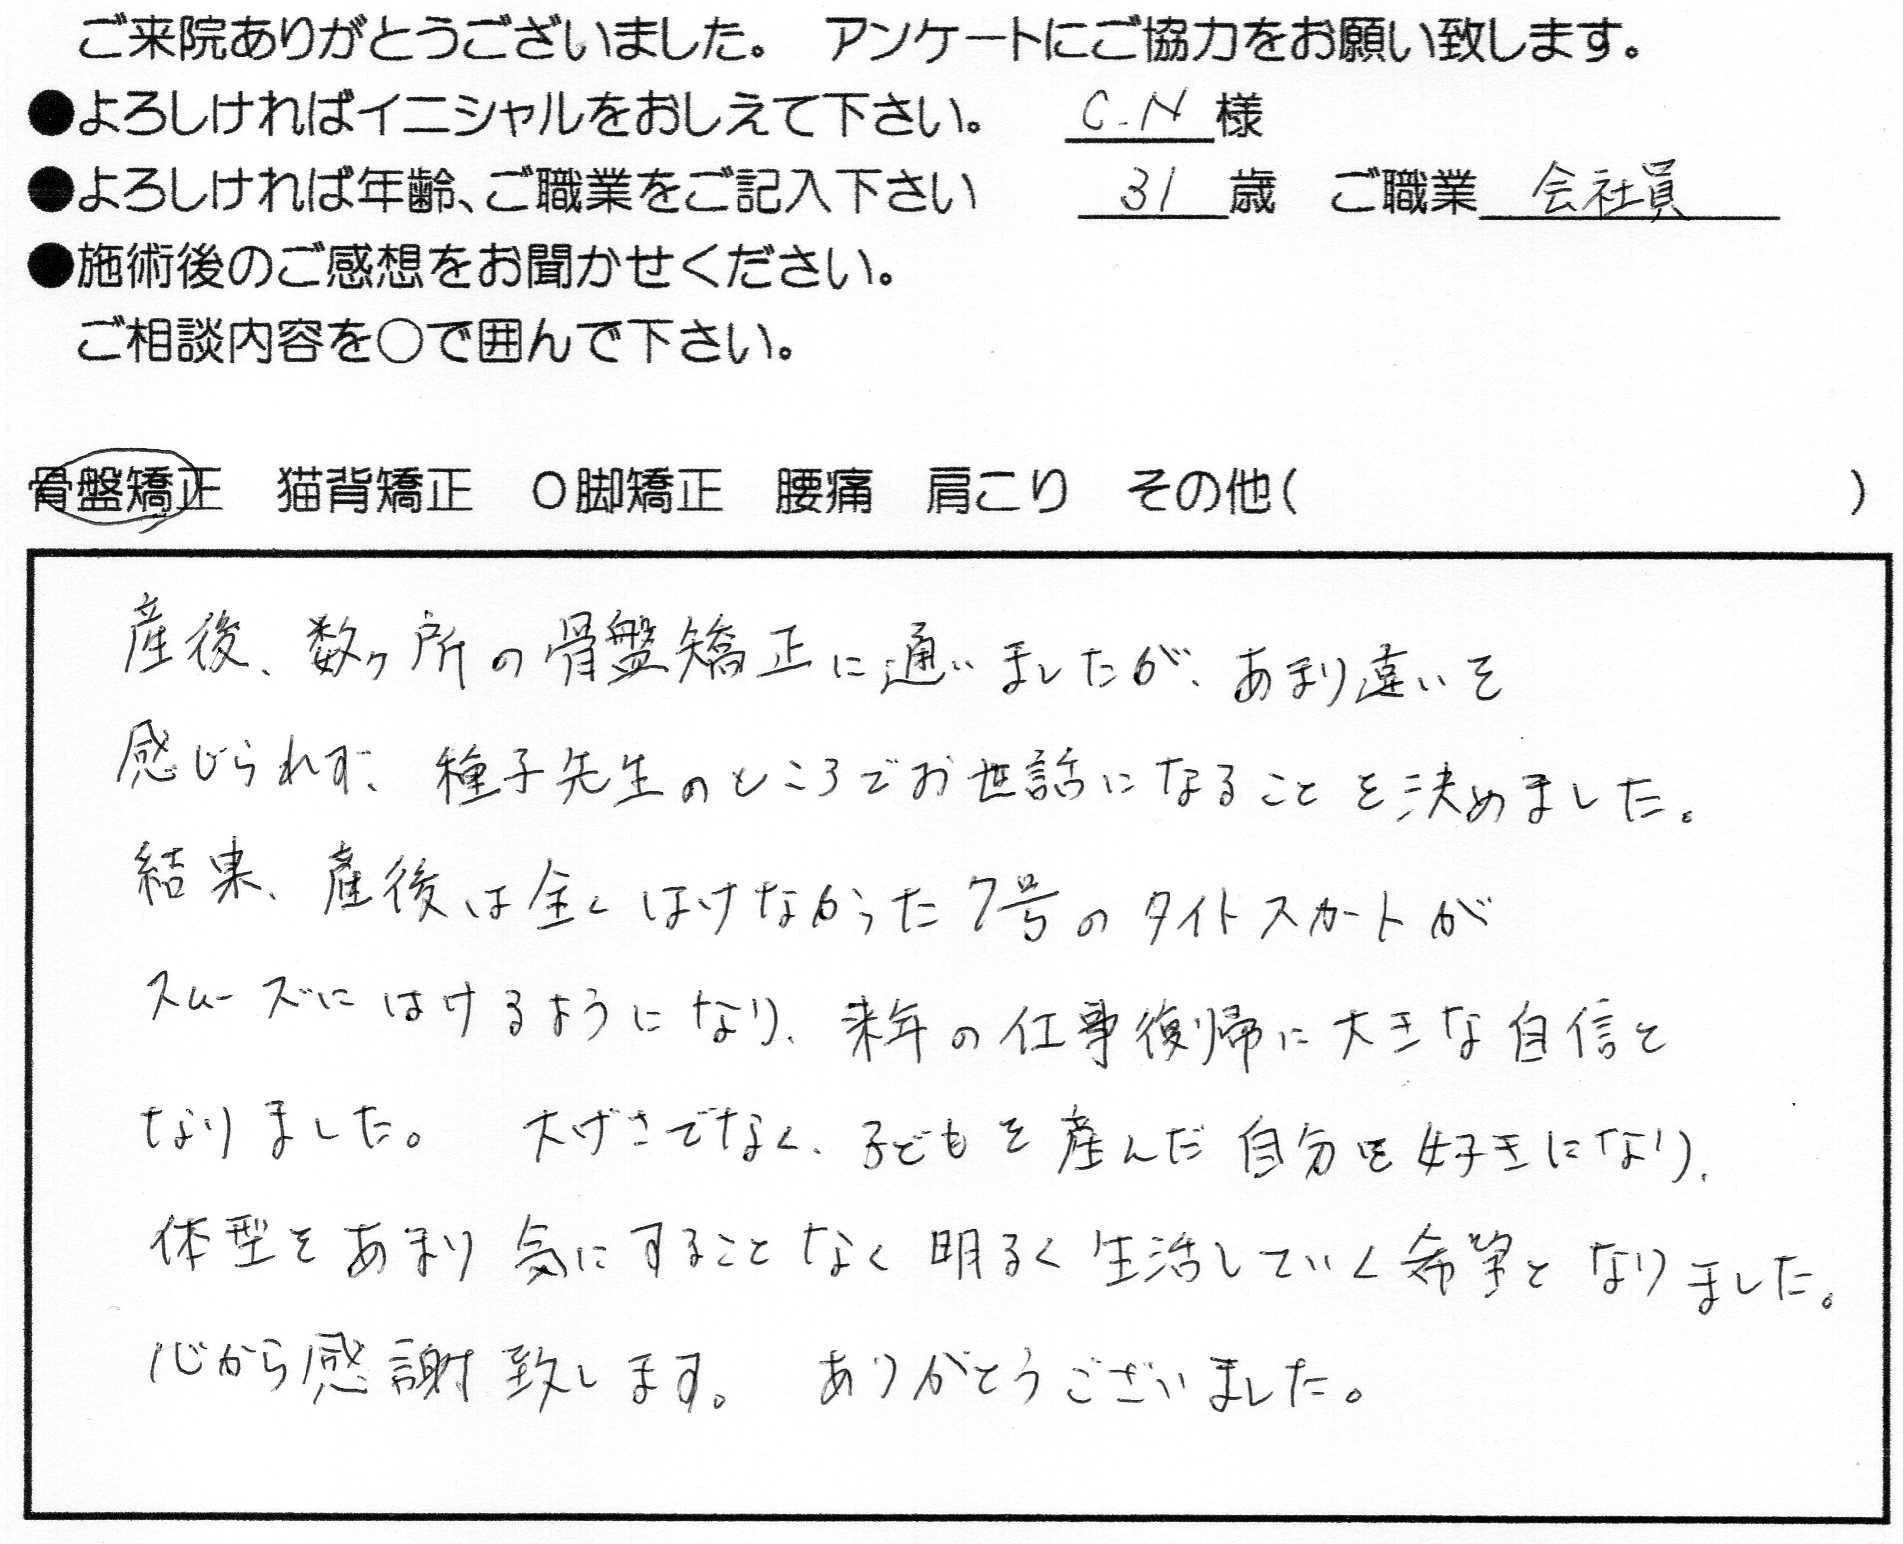 ご来院ありがとうございました。 アンケートにご協力をお願い致します。
●よろしければイニシャルをおしえて下さい。 C.N様
●よろしければ年齢、ご職業をご記入下さい 31歳 ご職業 会社員
●施術後のご感想をお聞かせください。
ご相談内容を○で囲んで下さい。
骨盤矯正 猫背矯正 O脚矯正 腰痛 肩こり その他( )
産後、数ヶ所の骨盤矯正に通いましたが、あまり違いを
感じられず、種子先生のところでお世話になることを決めました。
結果、産後は全くはけなかった7号のタイトスカートが
スムーズにはけるようになり、来年の仕事復帰に大きな自信と
なりました。 大げさでなく、子どもを産んだ自分を好きになり、
体型をあまり気にすることなく明るく生活していく希望となりました。
心から感謝致します。 ありがとうございました。